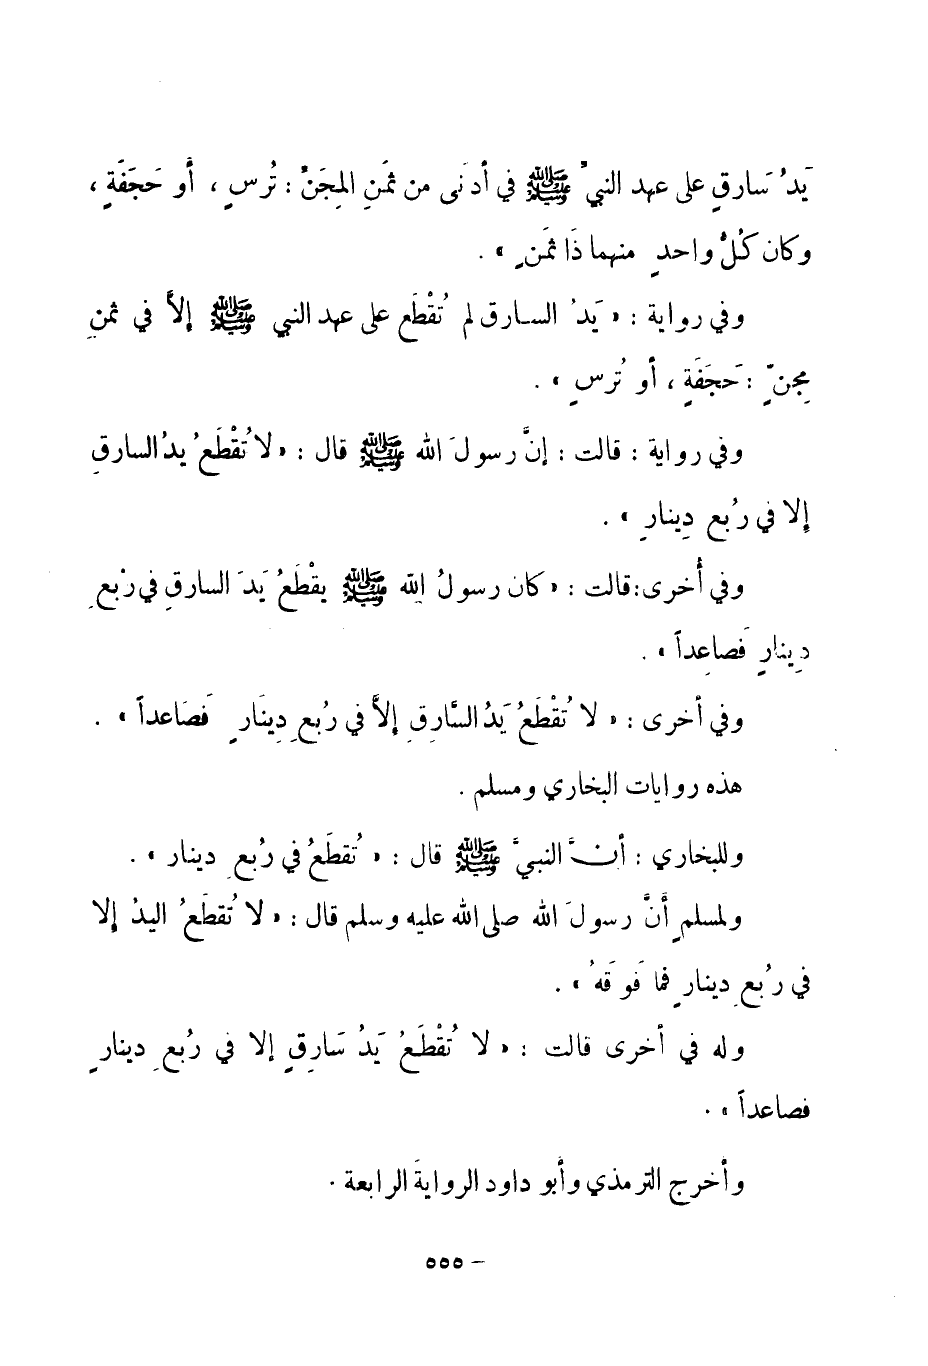 يَدُ سَارقٍ على عهد النبيِّ ﷺ في أدنَى من ثمَنِ المِجَنِّ : تُرسٍ ، أو حَجَفَةٍ ،
وكان كُلُّ واحدٍ منهما ذَا ثمَنٍ » .
وفي رواية : « يَدُ السـارق لم تُقْطَع على عهد النبي ﷺ إلاَّ في ثمنِ
مِجنٍّ : حَجَفَةٍ ، أو تُرسٍ » .
وفي رواية : قالت : إنَّ رسولَ الله ﷺ قال : « لا تُقْطَعُ يدُ السارقِ
إلا في رُبع دِينارٍ » .
وفي أُخرى : قالت : « كان رسولُ الله ﷺ يقْطَعُ يَدَ السارقِ في رُبْعِ
دِينارٍ فَصاعِداً » .
وفي أخرى : « لا تُقْطَعُ يَدُ السَّارِقِ إلاَّ في رُبعِ دِينَارٍ فَصَاعداً » .
هذه روايات البخاري ومسلم .
وللبخاري : أنَّ النبيَّ ﷺ قال : « تُقطَعُ في رُبعِ دينار » .
ولمسلمٍ أَنَّ رسولَ الله صلى الله عليه وسلم قال : « لا تُقطَعُ اليدُ إلا
في رُبعِ دينارٍ فما فَوقَهُ » .
وله في أخرى قالت : « لا تُقْطَعُ يَدُ سَارِقٍ إلا في رُبعِ دينارٍ
فصاعداً » .
وأخرج الترمذي وأبو داود الروايةَ الرابعة .
– ٥٥٥